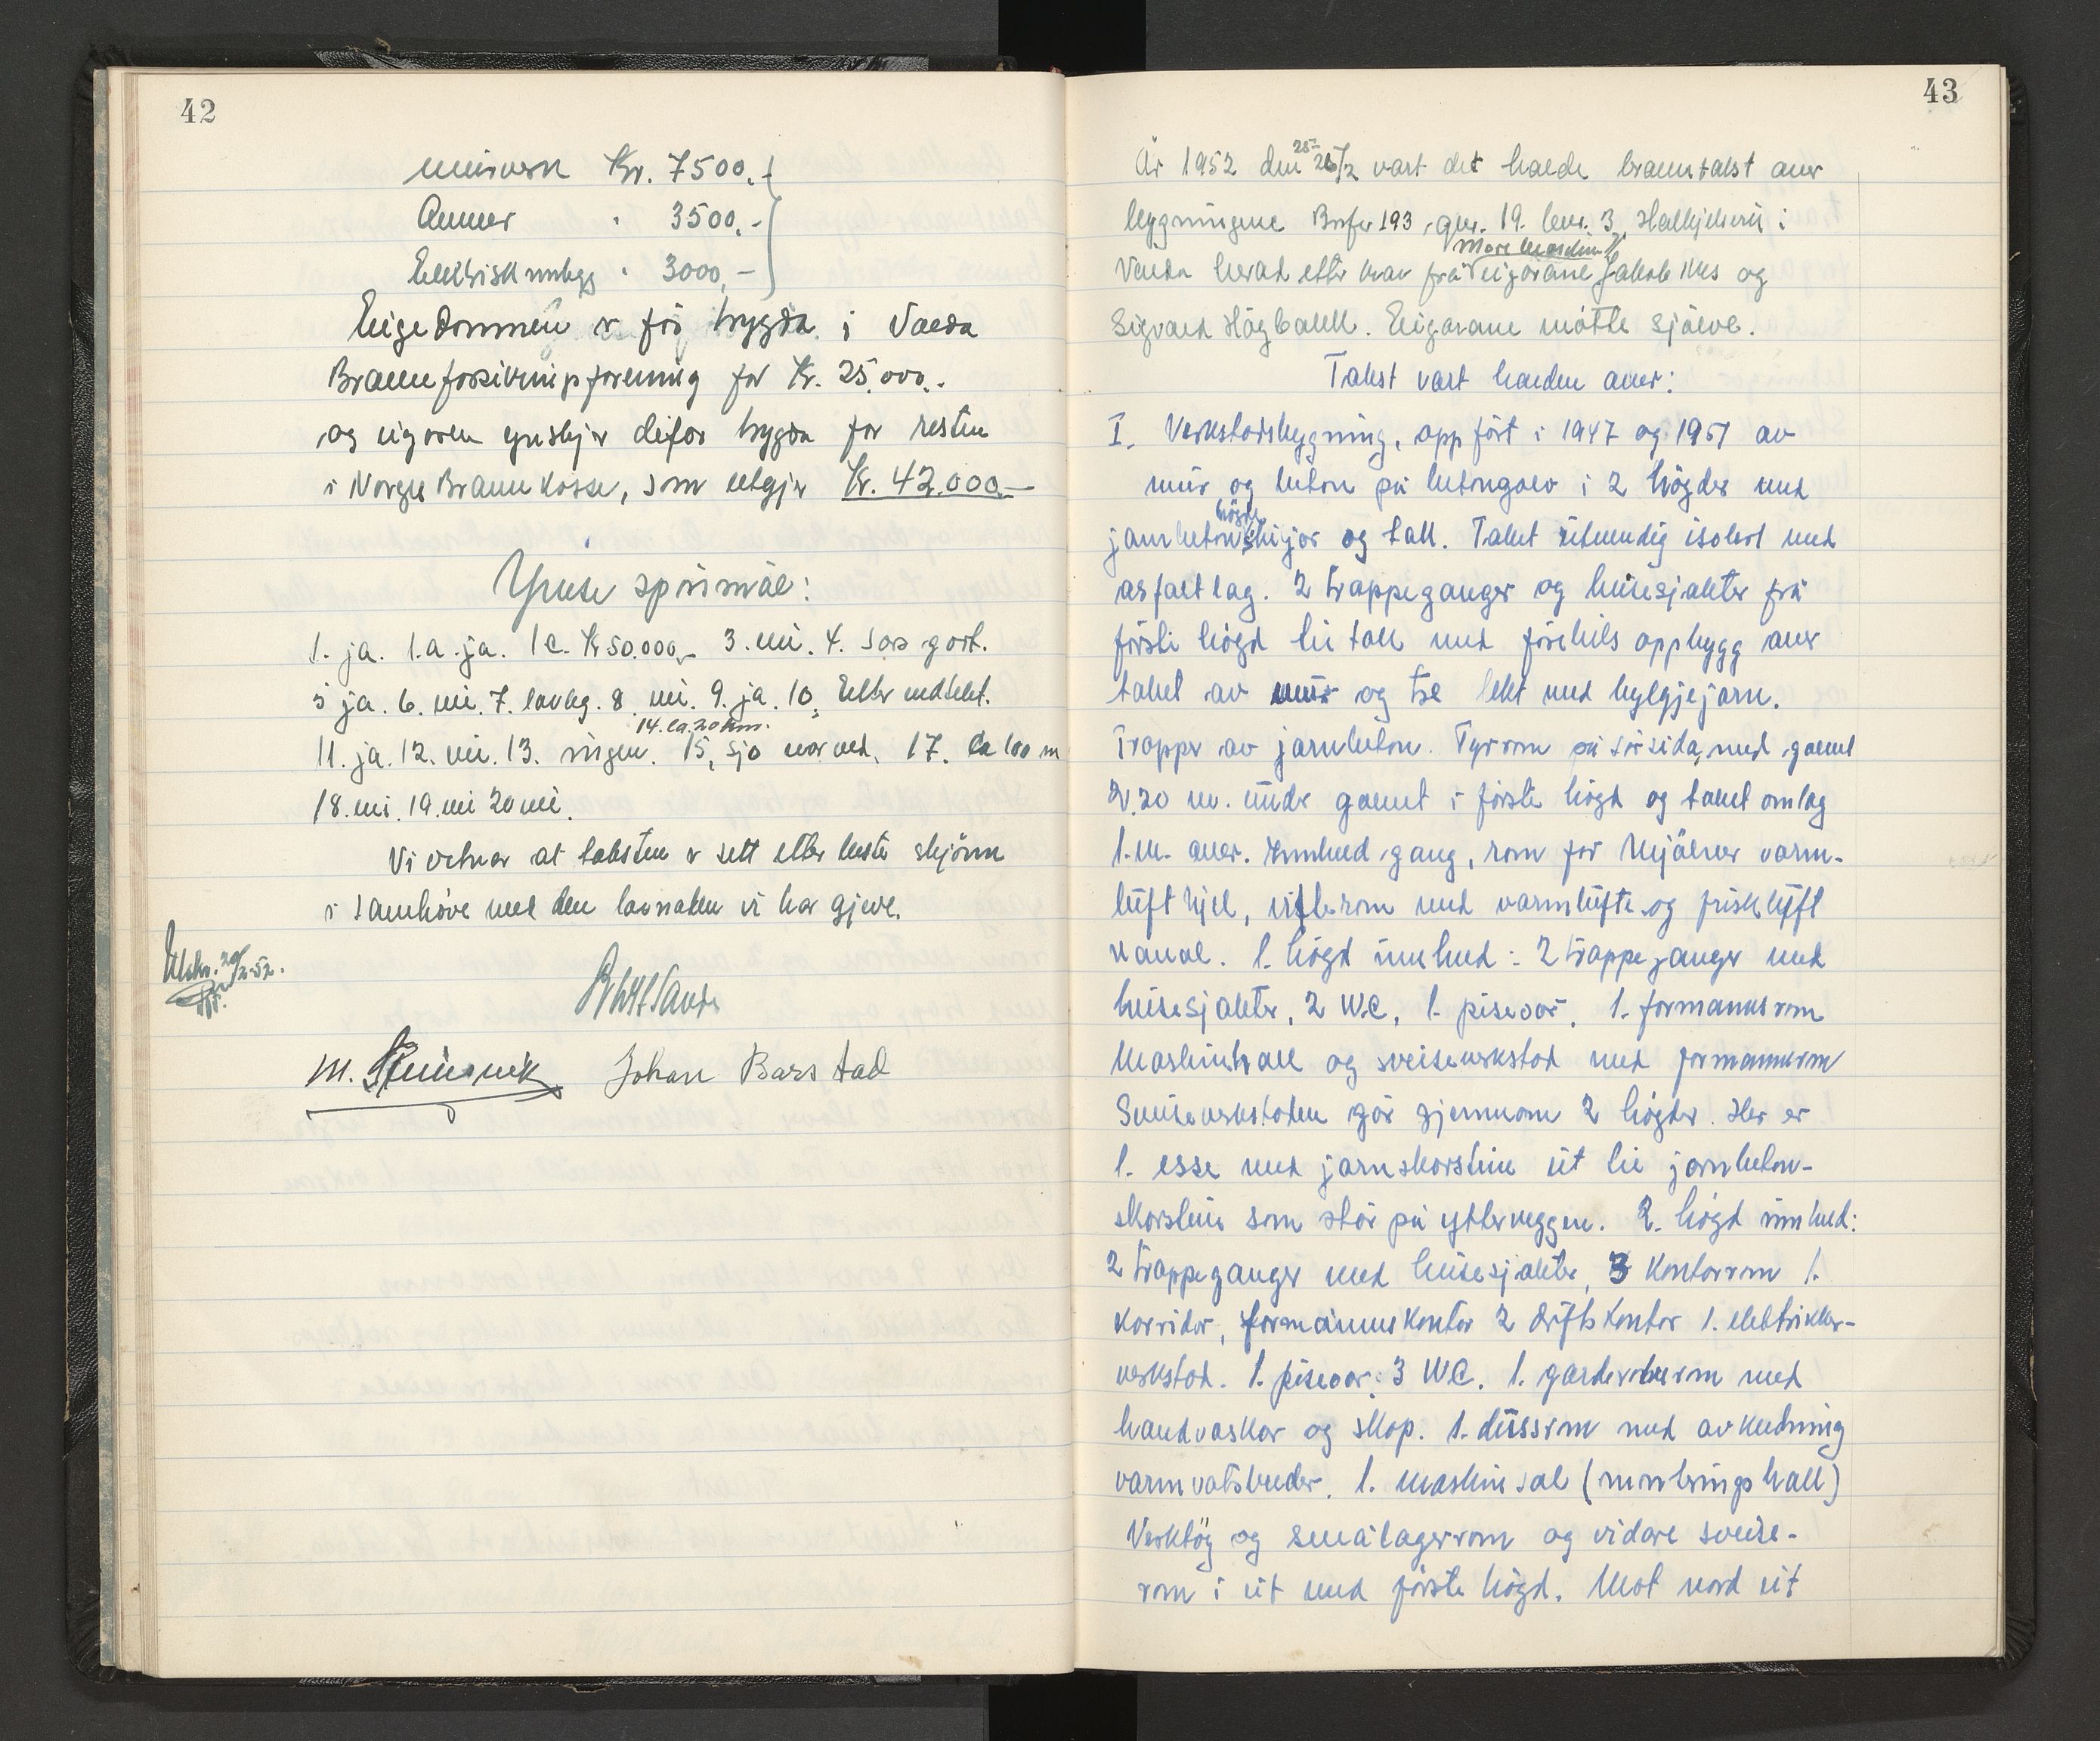 42
murverk Kr. 7500.-
Anner " 3500.-
Elektrisk innlegg " 3000,-
Eigedommen er før trygda i Volda
Brannforsikringsforening for Kr. 25.000.-
og eigaren ynskjer difor trygda for resten
i Norges Brannkasse, som utgjer Kr. 42.000.-
Ymse spörsmål:
1. ja. 1.a. ja. 1c. Kr 50.000,- 3. nei. 4. sers godt.
5 ja. 6. nei. 7. lovleg. 8. nei. 9. ja. 10. Etter vedtekt.
14. ca. 20 km.
11. ja. 12. nei. 13. ingen. 15. Sjø nær ved. 17. Ca 100 m
18. nei. 19. nei 20 nei.
Vi vitnar at taksten er sett etter beste skjönn
i samhøve med den lovnaden vi har gjeve.
Utskr. 20/2-52.
M. Johan Barstad
43
År 1952 den 25- 26/2 vart det halde branntakst over
bygningene Brnfr 193, gnr. 19. bnr. 3, i
Vanda herad etter krav frå eigarane Jakob og
Sigvard . Eigarane møtte sjølve.
Takst vart halden over:
I. Verkstadsbygning, oppført i 1947 og 1951 av
mur og betong på betonggolv i 2 högder med
högde
jarnbetongskiljor og tak. Taket utvendig isolert med
asfaltlag. 2 trappeganger og heisesjakter frå
første högd til tak med oppbygg over
taket av mur og tre lekt med bylgjejarn.
Trapper av jarnbeton. Fyrrom på sørsida, med golvet
2.20 m. under golvet i første högd og taket omlag
1. m. over. Innheld gang, rom for varm-
luftkjel, vifterom med varmlufts og friskluft
kanal. 1. högd innheld: 2 trappeganger med
heisesjakter, 2 W.C, 1. pisoar, 1. formannsrom
Maskinhall og sveiseverkstad med formannsrom
Sveiseverkstaden går gjennom 2 högder. Her er
1. esse med jarnskorstein ut til jarnbeton-
skorstein som står på ytterveggen. 2. högd innheld:
2 trappeganger med heisesjakter, 3 Kontorrom 1.
Korridor, formannskontor 2 driftskontor 1. elektriker-
verkstad. 1. pisoar. 3 WC. 1. garderoberom med
handvaskar og skap. 1. dussrom med avkledning
varmvatsbereder. 1. maskinsal (monteringshall)
Verktøy og smålagerrom og vidare sveise-
rom i eit med første högd. Mot nord eit